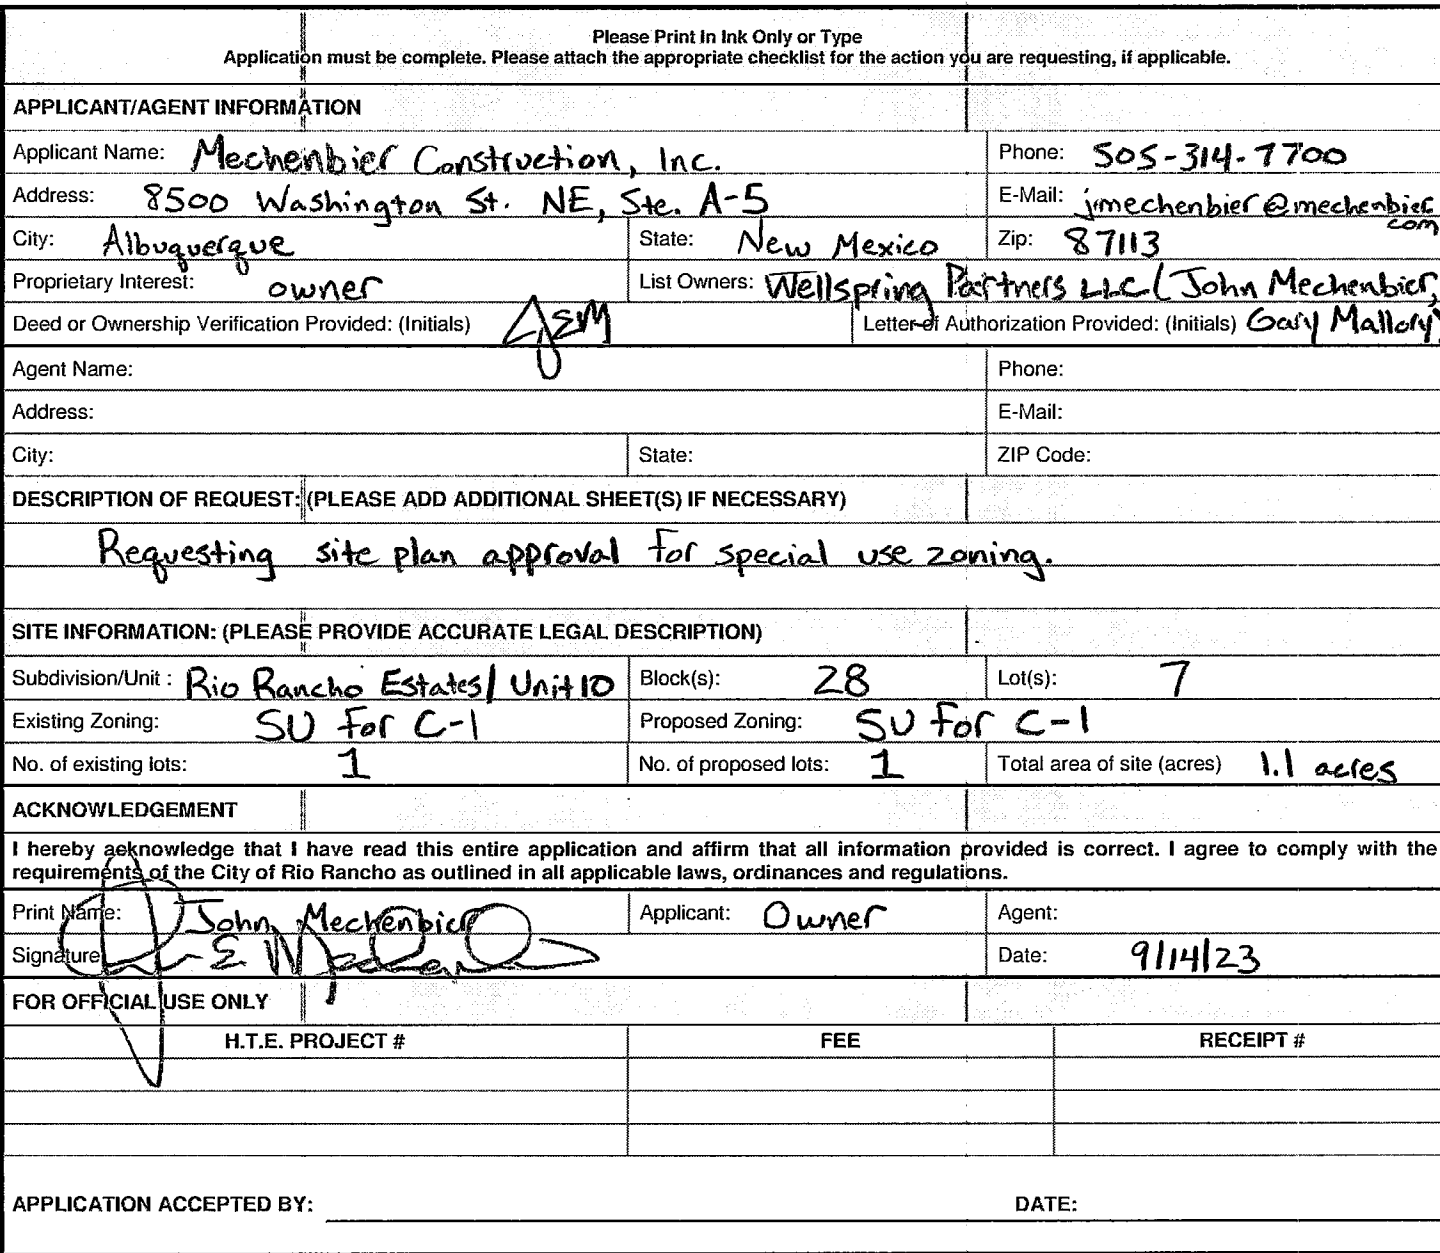 Please Print In Ink Only or Type
Application must be complete. Please attach the appropriate checklist for the action you are requesting, if applicable.
APPLICANT/AGENT INFORMATION
Applicant Name: Mechenbier Construction, Inc. Phone: 505-314-7700
Address: 8500 Washington St. NE, Ste. A-5 E-Mail: jmechenbier@mechenbier.
com
City: Albuquerque State: New Mexico Zip: 87113
Proprietary Interest: owner List Owners: Wellspring Partners LLC (John Mechenbier,
Deed or Ownership Verification Provided: (Initials) JEM Letter of Authorization Provided: (Initials) Gary Mallory)
Agent Name: Phone:
Address: E-Mail:
City: State: ZIP Code:
DESCRIPTION OF REQUEST: (PLEASE ADD ADDITIONAL SHEET(S) IF NECESSARY)
Requesting site plan approval for special use zoning.
SITE INFORMATION: (PLEASE PROVIDE ACCURATE LEGAL DESCRIPTION)
Subdivision/Unit : Rio Rancho Estates/ Unit 10 Block(s): 28 Lot(s): 7
Existing Zoning: SU for C-1 Proposed Zoning: SU for C-1
No. of existing lots: 1 No. of proposed lots: 1 Total area of site (acres) 1.1 acres
ACKNOWLEDGEMENT
I hereby acknowledge that I have read this entire application and affirm that all information provided is correct. I agree to comply with the
requirements of the City of Rio Rancho as outlined in all applicable laws, ordinances and regulations.
Print Name: John Mechenbier Applicant: Owner Agent:
Signature Date: 9/14/23
FOR OFFICIAL USE ONLY
H.T.E. PROJECT # FEE RECEIPT #
APPLICATION ACCEPTED BY: DATE: